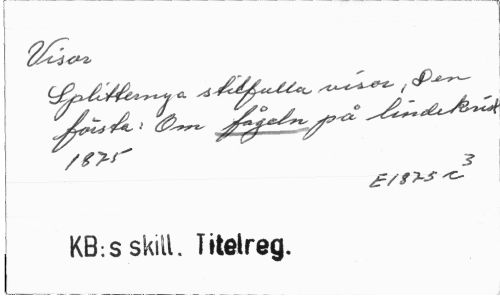 Visor
Splitternya stilfulla visor, Den
första: Om fågeln på lindekvist
1875
E1875 c³
KB:s skill. Titelreg.